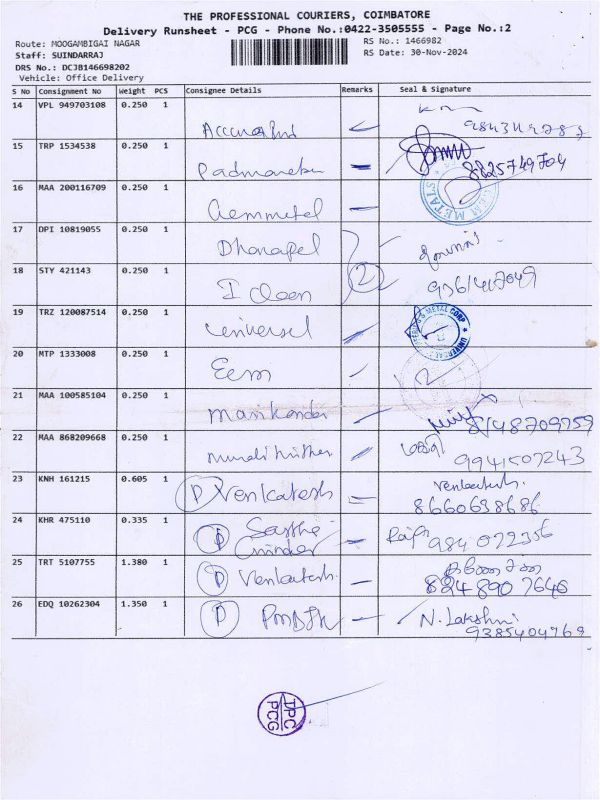 THE PROFESSIONAL COURIERS, COIMBATORE
Delivery Runsheet - PCG - Phone No.:0422-3505555 - Page No.:2
Route: MOOGAMBIGAI NAGAR RS No.: 1466982
Staff: SUINDARRAJ RS Date: 30-Nov-2024
DRS No.: DCJB146698202
Vehicle: Office Delivery
S No Consignment No Weight PCS Consignee Details Remarks Seal & Signature
14 VPL 949703108 0.250 1
15 TRP 1534538 0.250 1 8825749704
16 MAA 200116709 0.250 1 Gemmetal
17 DPI 10819055 0.250 1 Dhanapal
18 STY 421143 0.250 1 I Clean 2
19 TRZ 120087514 0.250 1 universel
20 MTP 1333008 0.250 1 Eem
21 MAA 100585104 0.250 1 Manikandan 8148709759
22 MAA 868209668 0.250 1 9941507243
23 KNH 161215 0.605 1 D Venkatesh Venkatesh. 8660638686
24 KHR 475110 0.335 1 D
25 TRT 5107755 1.380 1 D Venkatesh. 824890 7646
26 EDQ 10262304 1.350 1 D N. Lakshmi 9385404769
DPC
PCG